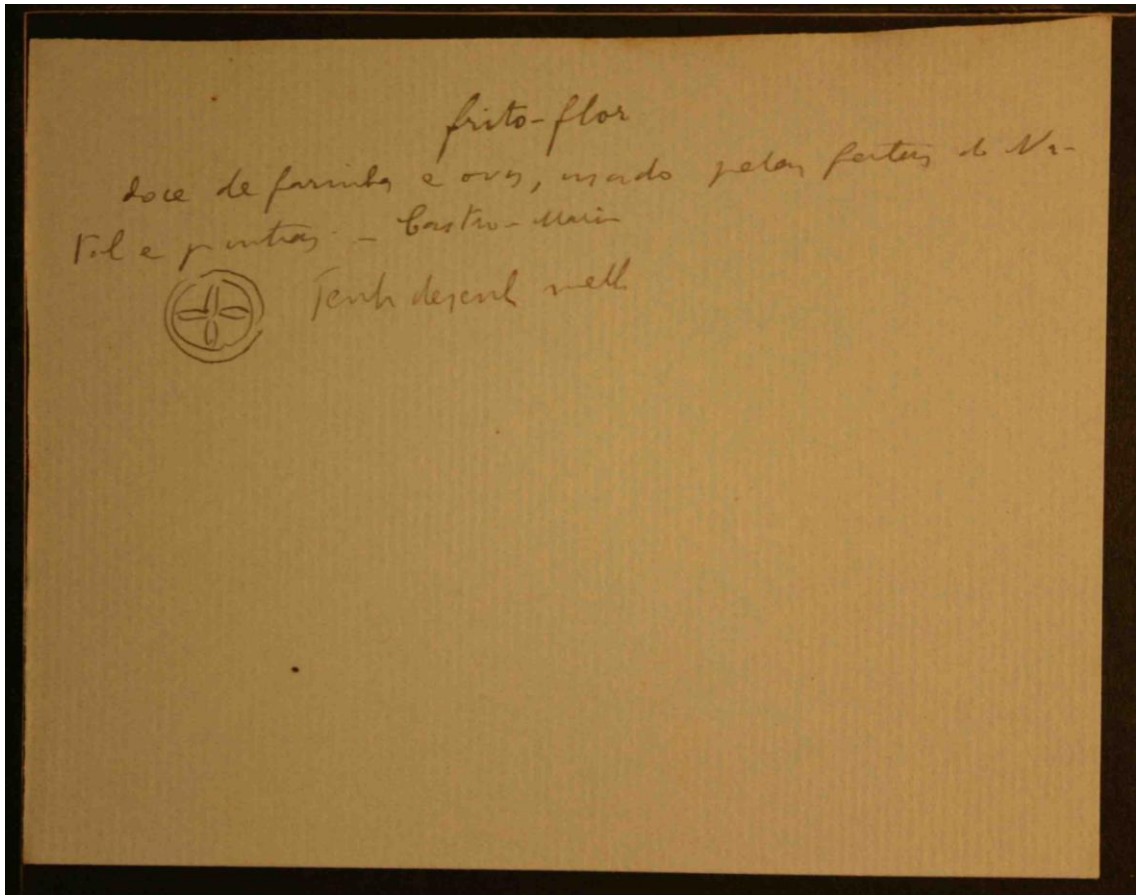 frito-flor
doce de farinha e ovos, usado pelas festas do Na-
tal e outras - Castro-Marim
Tenh desenh melh